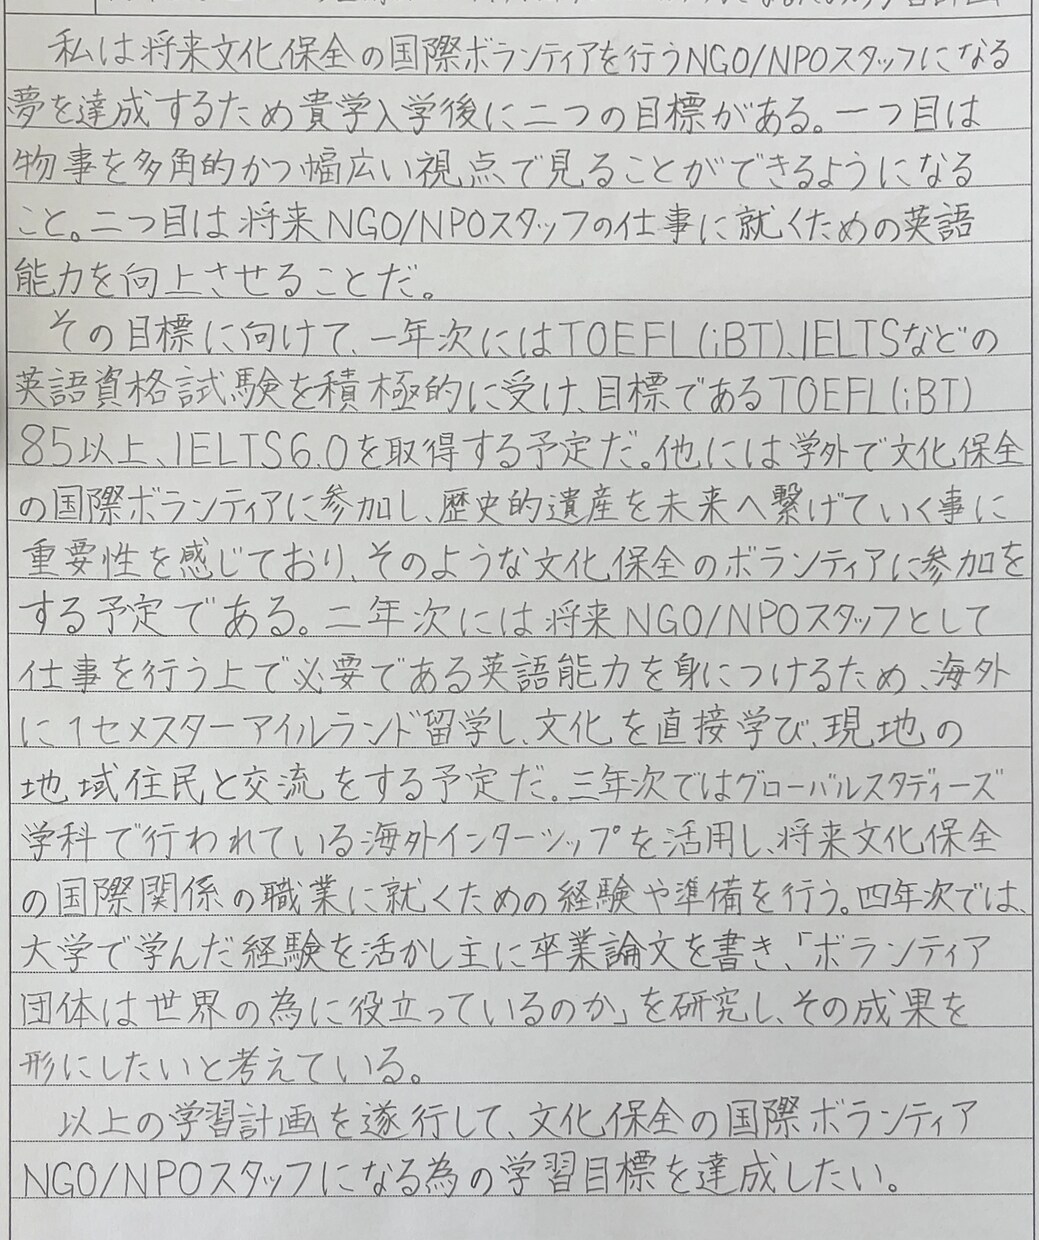 私は将来文化保全の国際ボランティアを行うNGO/NPOスタッフになる
夢を達成するため貴学入学後に二つの目標がある。一つ目は
物事を多角的かつ幅広い視点で見ることができるようになる
こと。二つ目は将来NGO/NPOスタッフの仕事に就くための英語
能力を向上させることだ。
その目標に向けて、一年次にはTOEFL(iBT)、IELTSなどの
英語資格試験を積極的に受け、目標であるTOEFL(iBT)
85以上、IELTS6.0を取得する予定だ。他には学外で文化保全
の国際ボランティアに参加し、歴史的遺産を未来へ繋げていく事に
重要性を感じており、そのような文化保全のボランティアに参加を
する予定である。二年次には将来NGO/NPOスタッフとして
仕事を行う上で必要である英語能力を身につけるため、海外
に1セメスターアイルランド留学し、文化を直接学び、現地の
地域住民と交流をする予定だ。三年次ではグローバルスタディーズ
学科で行われている海外インターシップを活用し、将来文化保全
の国際関係の職業に就くための経験や準備を行う。四年次では、
大学で学んだ経験を活かし主に卒業論文を書き、「ボランティア
団体は世界の為に役立っているのか」を研究し、その成果を
形にしたいと考えている。
以上の学習計画を遂行して、文化保全の国際ボランティア
NGO/NPOスタッフになる為の学習目標を達成したい。